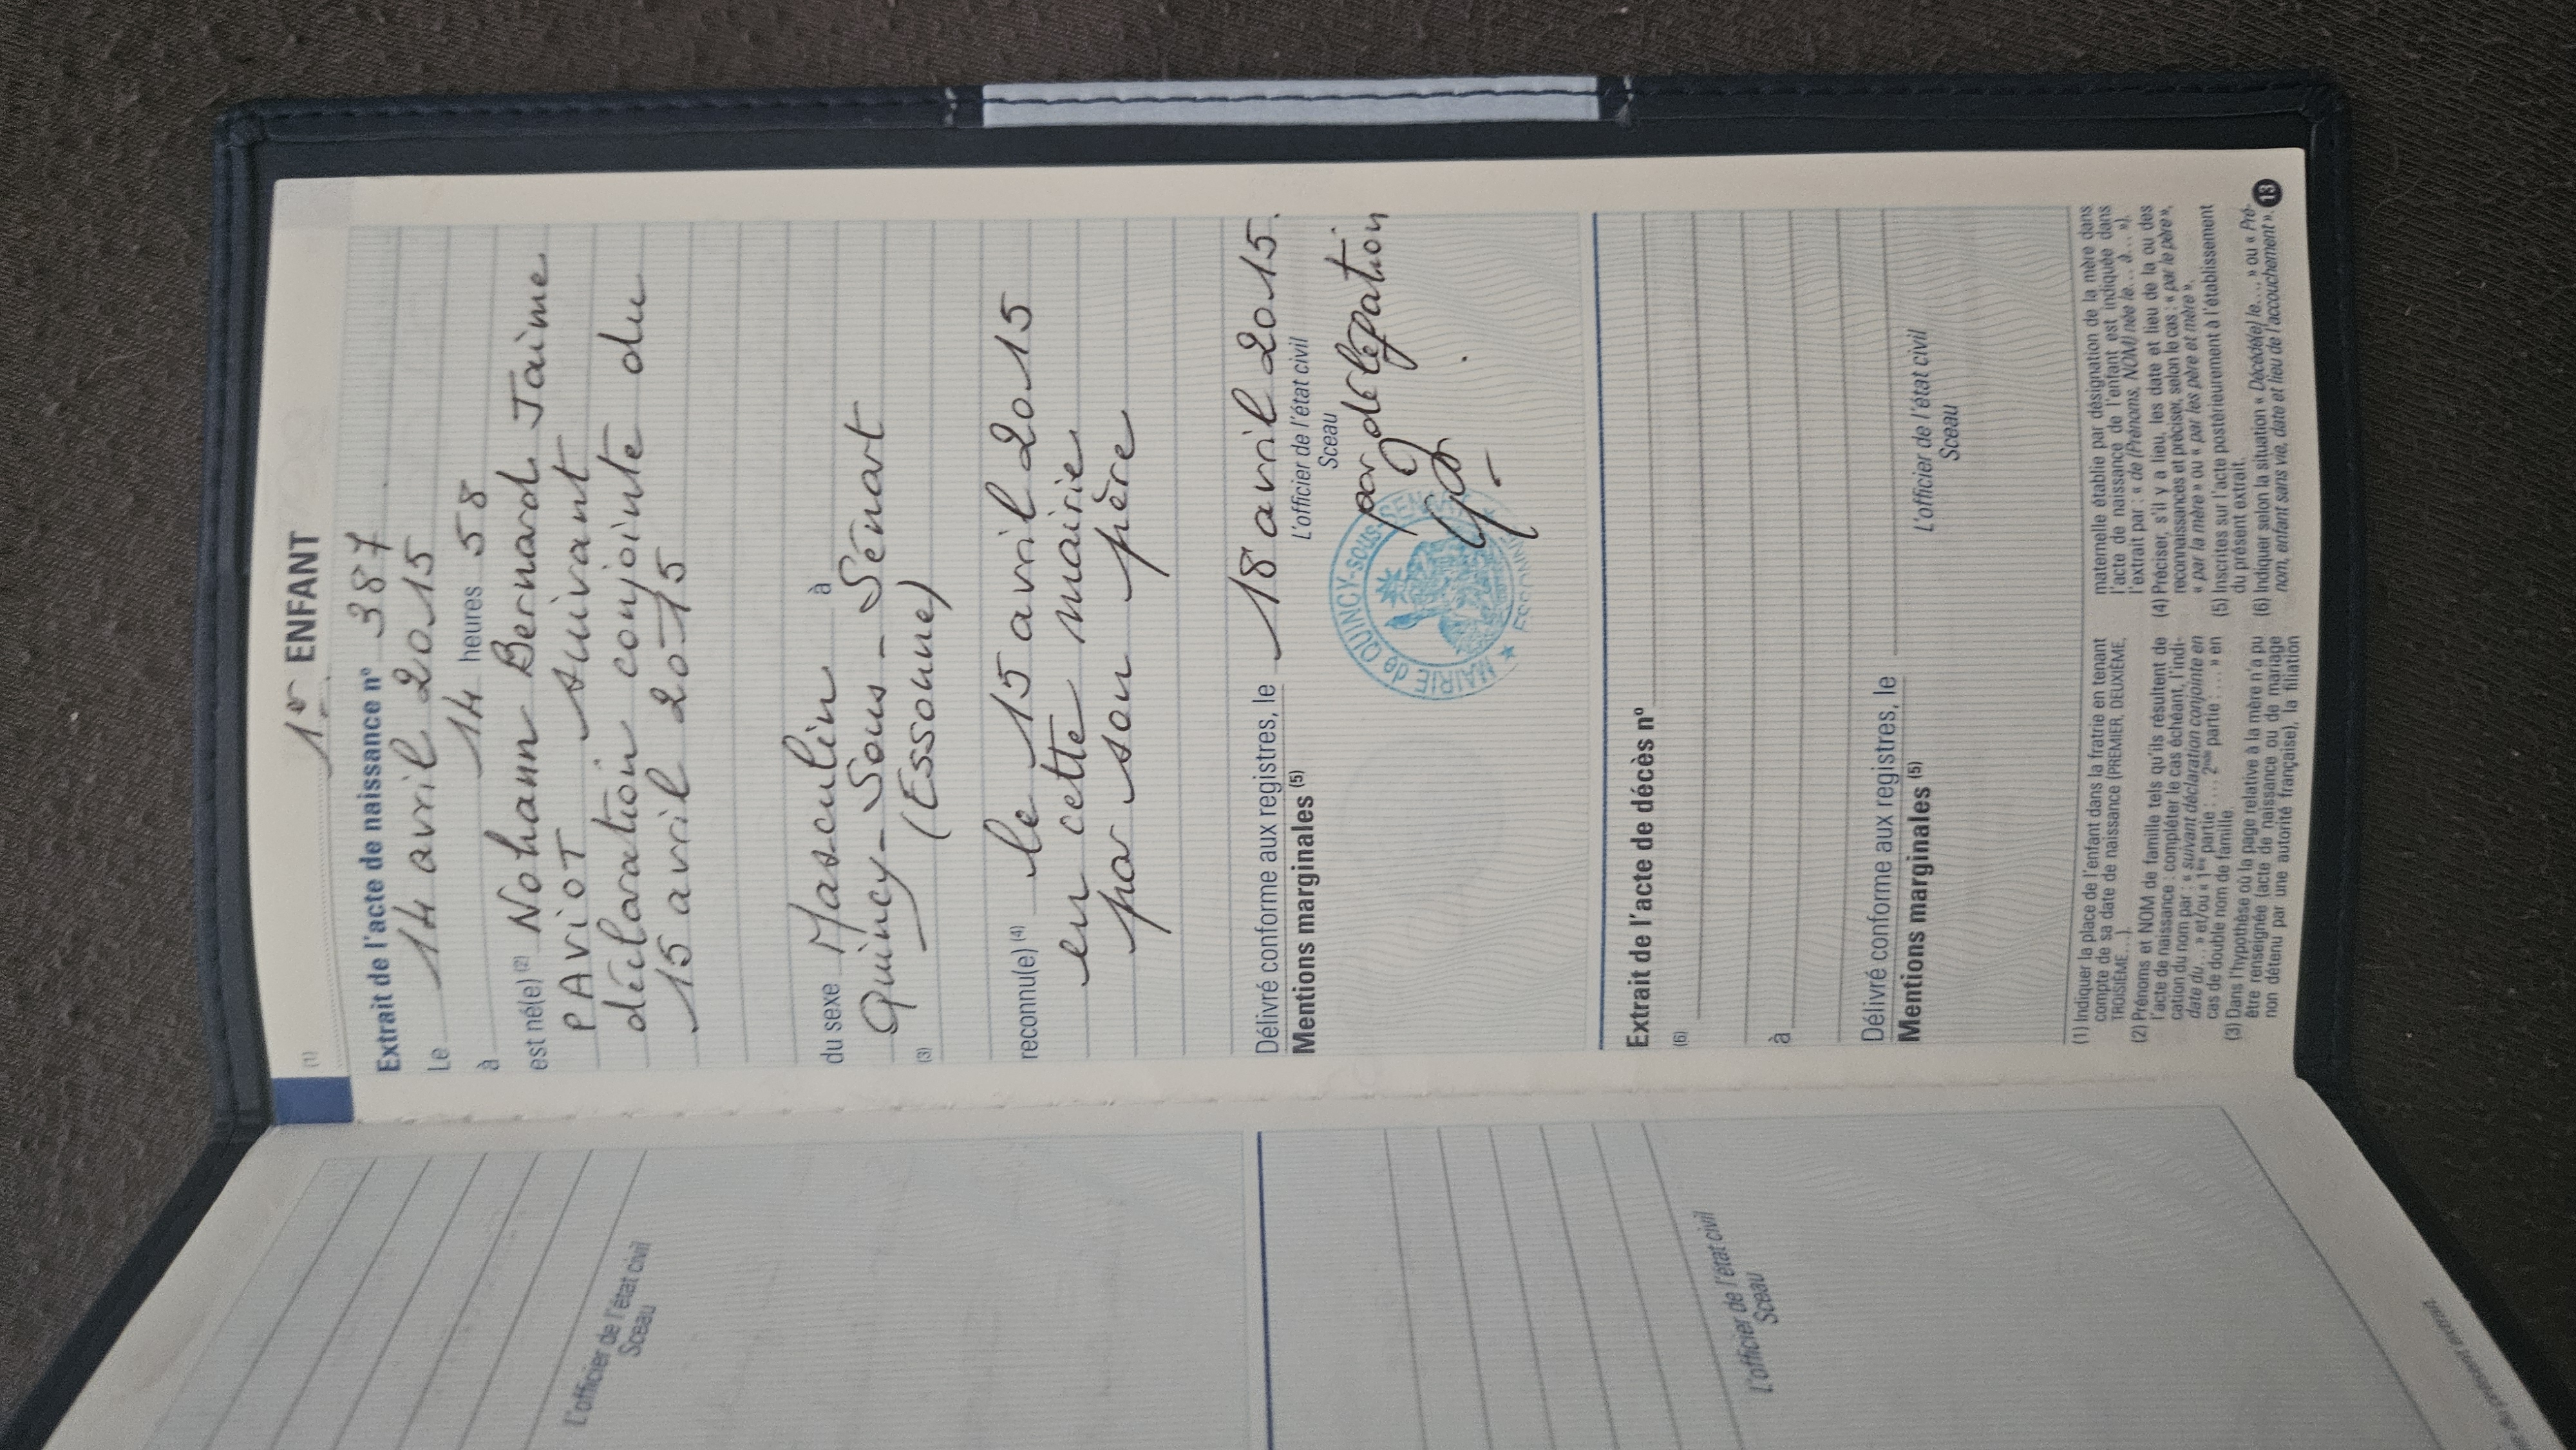 (1) 1er ENFANT
Extrait de l'acte de naissance n° 387
Le 14 avril 2015
à 14 heures 58
est né(e) (2) Nohann Bernard Jaime
PAVIOT suivant
déclaration conjointe du
15 avril 2015
du sexe Masculin à
Quincy-Sous-Sénart
(3) (Essonne)
reconnu(e) (4) le 15 avril 2015
en cette mairie
par son père
Délivré conforme aux registres, le 18 avril 2015.
Mentions marginales (5) L'officier de l'état civil
Sceau
par délégation
MAIRIE de QUINCY-sous-SÉNART
ESSONNE
Extrait de l'acte de décès n°
(6)
à
Délivré conforme aux registres, le
Mentions marginales (5) L'officier de l'état civil
Sceau
(1) Indiquer la place de l'enfant dans la fratrie en tenant
compte de sa date de naissance (PREMIER, DEUXIÈME,
TROISIÈME...).
(2) Prénoms et NOM de famille tels qu'ils résultent de
l'acte de naissance : compléter le cas échéant, l'indi-
cation du nom par : « suivant déclaration conjointe en
date du... » et/ou « 1ère partie : .... 2nde partie : .... » en
cas de double nom de famille.
(3) Dans l'hypothèse où la page relative à la mère n'a pu
être renseignée (acte de naissance ou de mariage
non détenu par une autorité française), la filiation
maternelle établie par désignation de la mère dans
l'acte de naissance de l'enfant est indiquée dans
l'extrait par : « de (Prénoms, NOM) née le... à... »).
(4) Préciser, s'il y a lieu, les date et lieu de la ou des
reconnaissances et préciser, selon le cas : « par le père »,
« par la mère » ou « par les père et mère ».
(5) Inscrites sur l'acte postérieurement à l'établissement
du présent extrait.
(6) Indiquer selon la situation « Décédé(e) le... » ou « Pré-
nom, enfant sans vie, date et lieu de l'accouchement ».
13
L'officier de l'état civil
Sceau
L'officier de l'état civil
Sceau
du présent extrait.